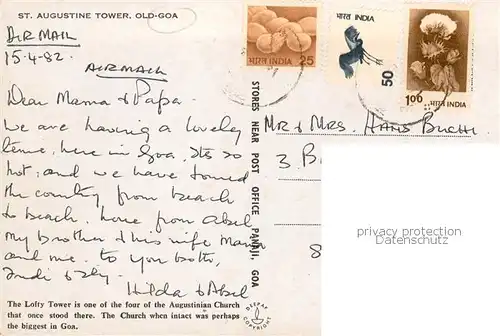 ST. AUGUSTINE TOWER, OLD-GOA
AIRMAIL
15-4-82.
AIRMAIL
Dear Mama & Papa.
We are having a lovely
time, here in Goa. Its so
hot; and we have toured
the country from beach
to beach. love from Abel
my brother & his wife
and me. to you both,
Hilda & Abel
The Lofty Tower is one of the four of the Augustinian Church
that once stood there. The Church when intact was perhaps
the biggest in Goa.
STORES NEAR POST OFFICE PANAJI, GOA
DEEPAK
COPYRIGHT
25
भारत INDIA
भारत INDIA
50
1.00 भारत INDIA
Mr & Mrs. Hans
3. B
8
privacy protection
Datenschutz